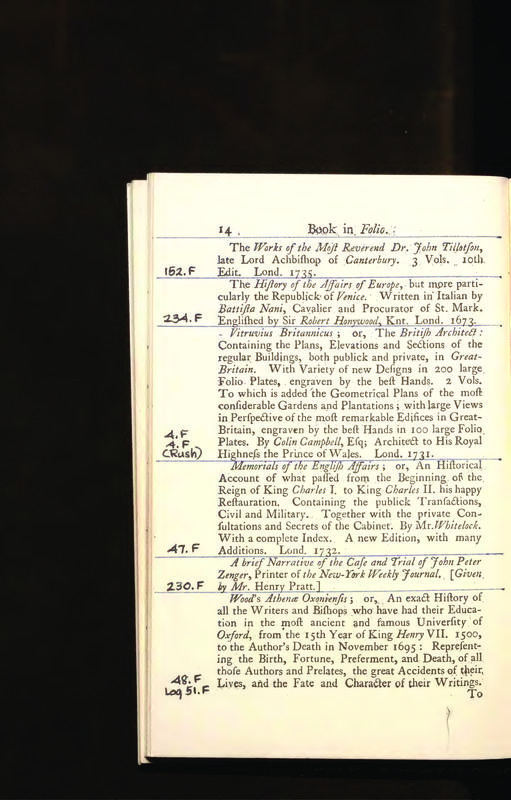 14
Book in Folio.
The Works of the Moſt Reverend Dr. John Tillotſon,
late Lord Achbiſhop of Canterbury. 3 Vols. 10th.
152.F Edit. Lond. 1735.
The Hiſtory of the Affairs of Europe, but more parti-
cularly the Republick of Venice. Written in Italian by
Battiſta Nani, Cavalier and Procurator of St. Mark.
234.F Engliſhed by Sir Robert Honywood, Knt. Lond. 1673.
Vitruvius Britannicus; or, The Britiſh Architect:
Containing the Plans, Elevations and Sections of the
regular Buildings, both publick and private, in Great-
Britain. With Variety of new Deſigns in 200 large
Folio Plates, engraven by the beſt Hands. 2 Vols.
To which is added the Geometrical Plans of the moſt
conſiderable Gardens and Plantations; with large Views
in Perſpective of the moſt remarkable Edifices in Great-
Britain, engraven by the beſt Hands in 100 large Folio
4.F
4.F Plates. By Colin Campbell, Eſq; Architect to His Royal
(Rush) Highneſs the Prince of Wales. Lond. 1731.
Memorials of the Engliſh Affairs; or, An Hiſtorical
Account of what paſſed from the Beginning of the
Reign of King Charles I. to King Charles II. his happy
Reſtauration. Containing the publick Tranſactions,
Civil and Military. Together with the private Con-
ſultations and Secrets of the Cabinet. By Mr. Whitelock.
With a complete Index. A new Edition, with many
47.F Additions. Lond. 1732.
A brief Narrative of the Caſe and Trial of John Peter
Zenger, Printer of the New-York Weekly Journal. [Given
230.F by Mr. Henry Pratt.]
Wood's Athenæ Oxonienſis; or, An exact Hiſtory of
all the Writers and Biſhops who have had their Educa-
tion in the moſt ancient and famous Univerſity of
Oxford, from the 15th Year of King Henry VII. 1500,
to the Author's Death in November 1695: Repreſent-
ing the Birth, Fortune, Preferment, and Death, of all
thoſe Authors and Prelates, the great Accidents of their
48.F Lives, and the Fate and Character of their Writings.
Log 51.F
To